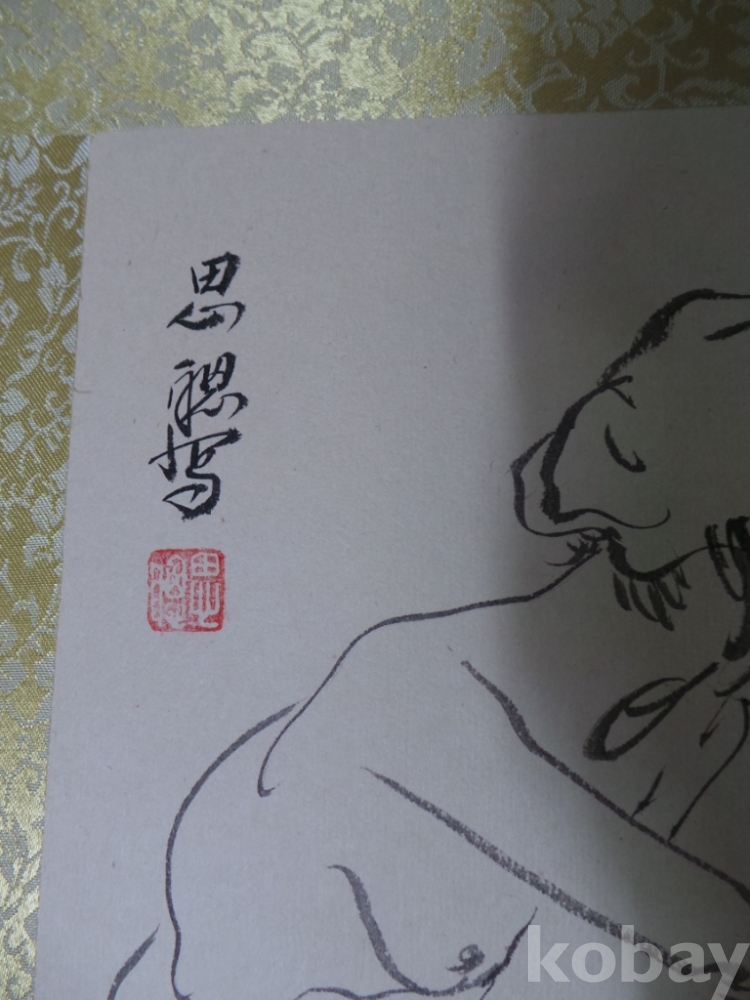 思聰寫
kobay